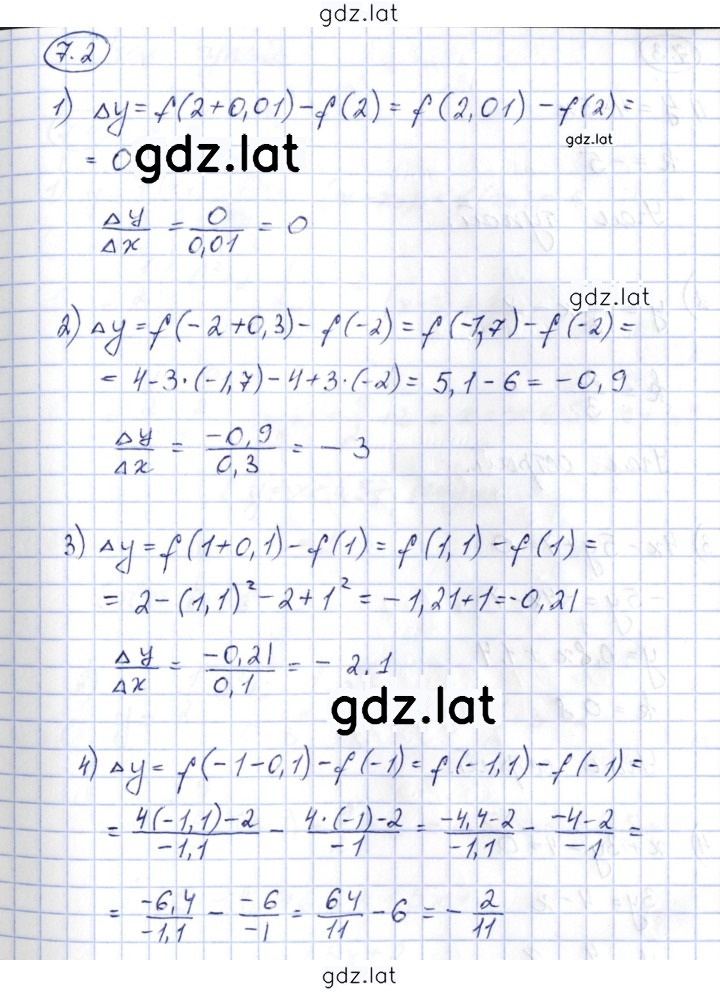 gdz.lat
7.2
1) Δy = f(2+0,01) - f(2) = f(2,01) - f(2) =
gdz.lat
= 0
gdz.lat
Δy/Δx = 0/0,01 = 0
gdz.lat
2) Δy = f(-2+0,3) - f(-2) = f(-1,7) - f(-2) =
= 4-3·(-1,7)-4+3·(-2) = 5,1-6 = -0,9
Δy/Δx = -0,9/0,3 = -3
3) Δy = f(1+0,1) - f(1) = f(1,1) - f(1) =
= 2-(1,1)²-2+1² = -1,21+1=-0,21
Δy/Δx = -0,21/0,1 = -2.1
gdz.lat
4) Δy = f(-1-0,1) - f(-1) = f(-1,1) - f(-1) =
= 4(-1,1)-2/-1,1 - 4·(-1)-2/-1 = -4,4-2/-1,1 - -4-2/-1 =
= -6,4/-1,1 - -6/-1 = 64/11 - 6 = -2/11
gdz.lat